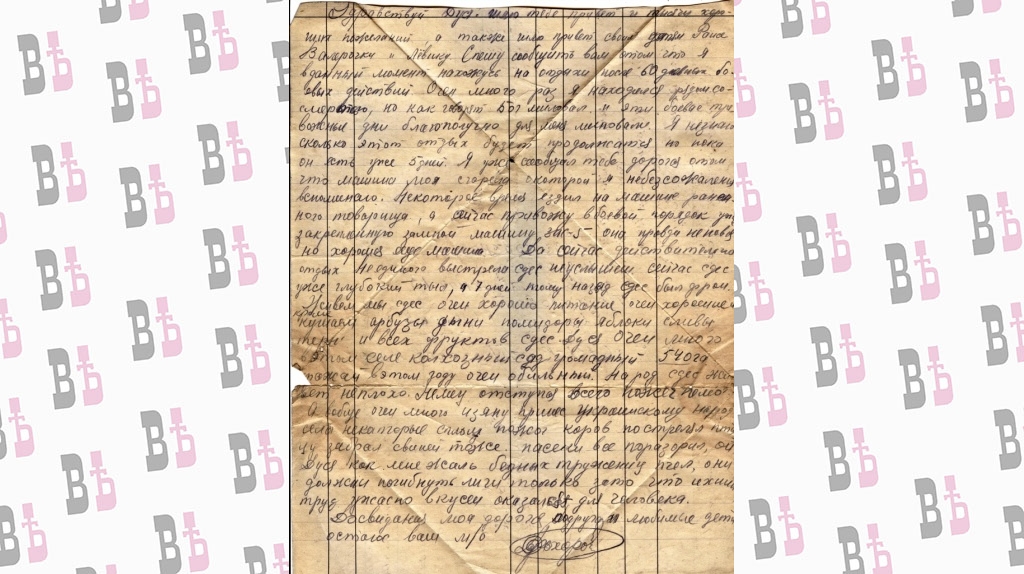 Здравствуй Дуся. шлю тебе привет и
пожеланий а также шлю привет своим детям Рая
Валерочку и Лёвику Спешу сообщить вам о том что я
в данный момент нахожус на отдыхи после 60 дневных бо-
евых действий Очен много раз я находился рядом со
смертью, но как говорят 501 миновал и эти боевые тре
вожные дни благополучно для меня миновали. Я незнаю
сколько этот отдых будет продолжатся но пока
он есть уже 5 дней. Я уже сообщал тебе дорогая о том
что машина моя сгорела о которой я
вспоминаю. Некоторое время ездил на машине ранен
ного товарища, а сейчас привожу в боевой порядок уже
закрепленную замной машину ЗИС-5 она правда неновая
но хорошая машина. Да сейчас действительно
отдых Неединого выстрела сдес неуслышем сейчас сдес
уже глубокий тыл, а 7 дней тому назад сдес был фронт.
Живем мы сдес очен хорошо питание очен хорошее
кушаем арбузы дыни помидоры яблоки сливы
терн и всех фруктов сдес Дуся Очен много
в этом селе колхозный сад громадный 540га
урожай в этом году очен обильный. Народ сдес жи
вет неплохо. Немец отступая всего пожеч
А вобще очен много изяну принес украинскому народу
села некоторые сплош пожог коров пострелял пти
цу забрал свиней тоже. пасеки все поразорил, ой
Дуся как мне жаль бедных тружениц пчел, они
должны погибнуть лиш только зато что ихний
труд ужасно вкусен оказался для человека.
Досвидания моя дорогая подруга и любимые дети
остаюс ваш м/о